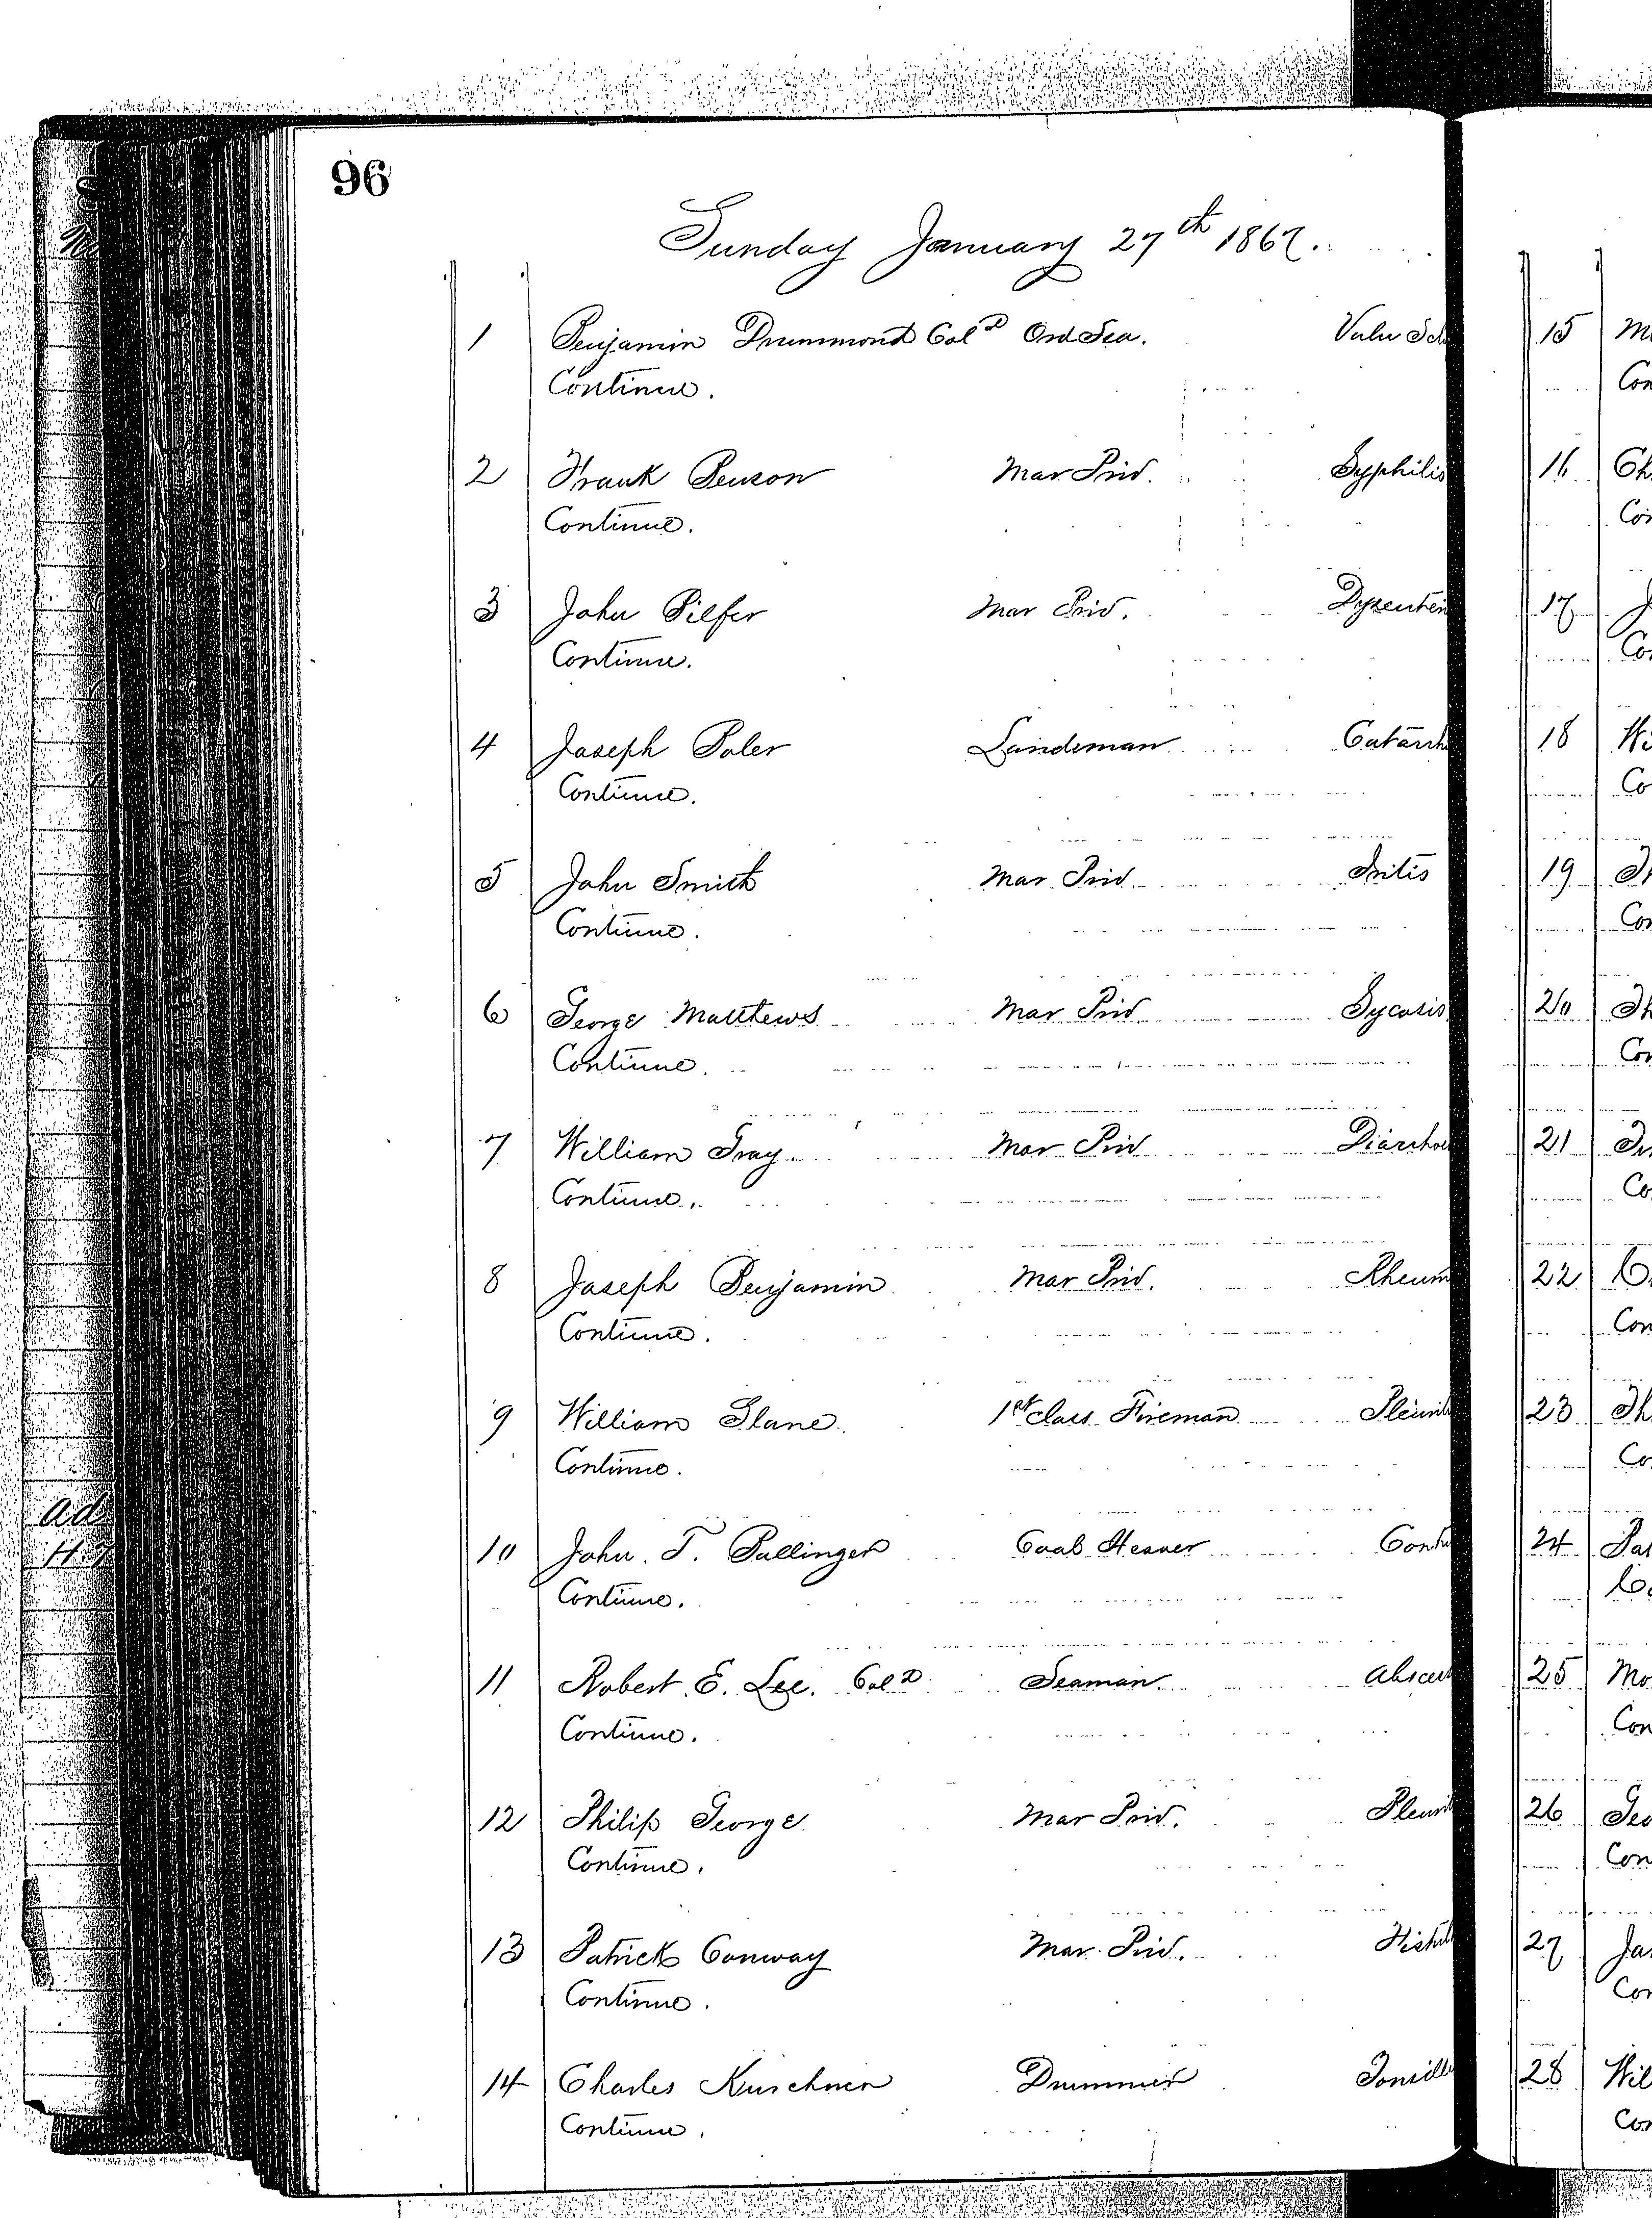 96
Sunday January 27th 1867.
1 Benjamin Drummond Cold Ord Sea. Vuln Scl
Continue.
2 Frank Benson Mar Priv. Syphilis
Continue.
3 John Pilfer Mar Priv. Dysenter
Continue.
4 Joseph Boler Landsman Catarrh
Continue.
5 John Smith Mar Priv Iritis
Continue.
6 George Matthews Mar Priv Sycosis
Continue.
7 William Gray. Mar Priv Diarrhoe
Continue.
8 Joseph Benjamin Mar Priv. Rheum
Continue.
9 William Slane 1st class Fireman Pleurit
Continue.
10 John. T. Ballinger Coal Heaver Contu
Continue.
11 Robert. E. Lee. Cold Seaman. Absces
Continue.
12 Philip George Mar Priv. Pleurit
Continue.
13 Patrick Conway Mar. Priv. Fistul
Continue.
14 Charles Kirschner Drummer Tonsilli
Continue.
15 M
Con
16 Ch
Con
17 J
Co
18 Wi
Co
19 Th
Con
20 Th
Con
21
Co
22
Con
23 Th
Co
24 Pat
Co
25 Mo
Con
26 Geo
Con
27 Ja
Con
28 Wil
Con
Ad